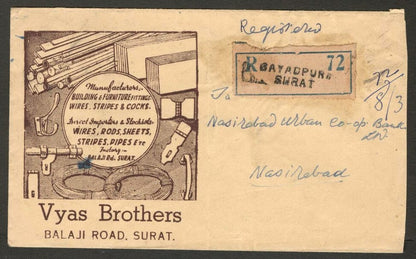 Registered
R
SAYADPURA
SURAT
72
8/3
To
Nasirabad Urban Co-op. Bank
Ltd.
Nasirabad
Manufacturers,
BUILDING & FURNITURE FITTINGS
WIRES, STRIPES & COCKS.
Direct Importers & Stockists
WIRES, RODS, SHEETS,
STRIPES, PIPES Etc
Factory:-
BALAJI Rd., SURAT.
Vyas Brothers
BALAJI ROAD, SURAT.